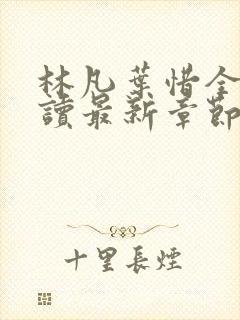 林凡葉惜全
讀最新章節
十里長煙